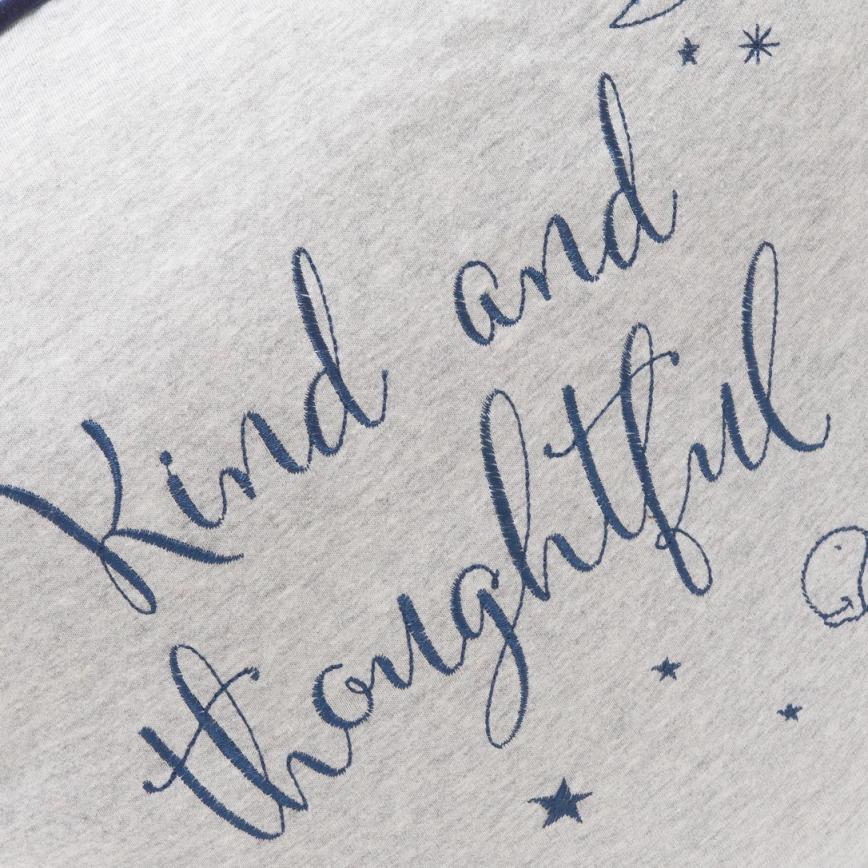 Kind and
thoughtful